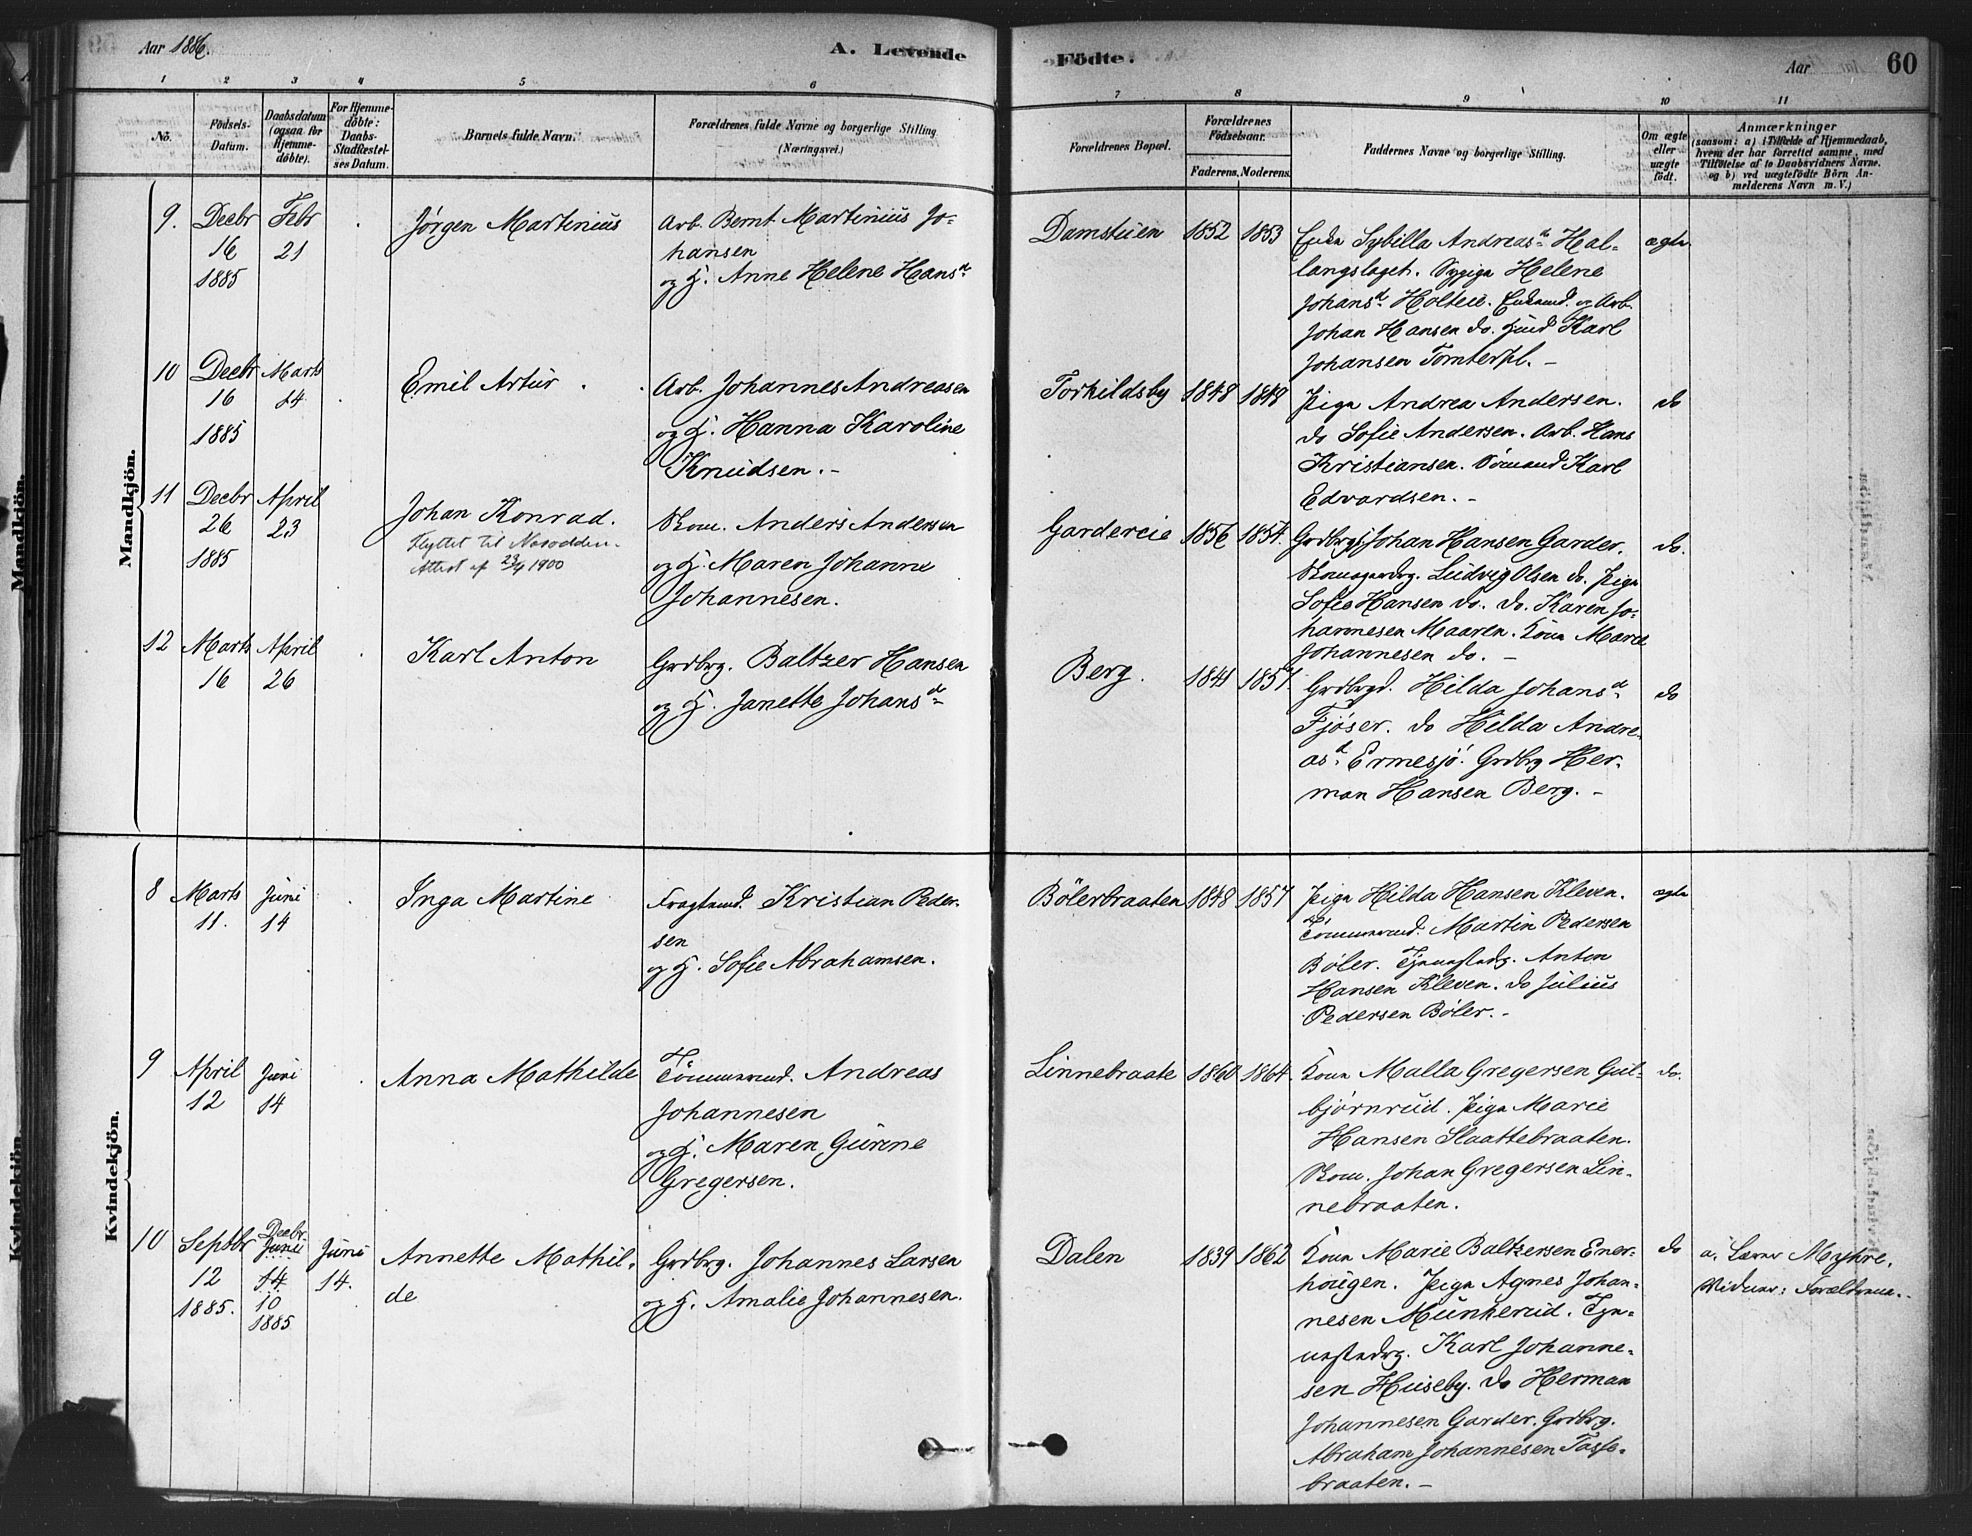 Aar 1886.
A. Levende
Födte.
Aar
60
1 2 3 4 5 6 7 8 9 10 11
No.
Födsels-
Datum.
Daabsdatum
(ogsaa for
Hjemme-
döbte).
For Hjemme-
döbte:
Daabs-
Stadfestel-
ses Datum.
Barnets fulde Navn.
Forældrenes fulde Navne og borgerlige Stilling
(Næringsvei.)
Forældrenes Bopæl.
Forældrenes
Födselsaar.
Faderens. Moderens.
Faddernes Navne og borgerlige Stilling.
Om ægte
eller
uægte
födt.
Anmærkninger
(saasom: a) i Tilfælde af Hjemmedaab,
hvem der har forrettet samme, med
Tilföielse af to Daabsvidners Navne.
og b) ved uægtefödte Börn An-
melderens Navn m. V.)
Mandkjön.
9.
Decbr
16
1885
Febr
21
Jørgen Martinius
Arb. Bernt Martinius Jo-
hansen
og H. Anne Helene Hansd.
Damstuen
1852 1853
Enke Sybilla Andreasd. Hal-
langslaget. Pigen Helene
Johansd. Holteie. og Arb.
Johan Hansen do. Karl
Johansen Tomterpl. –
ægte
10
Decbr
16
1885
Marts
14
Emil Artur
Arb. Johannes Andreasen
og H. Hanna Karoline
Knudsen. –
Torkildsby
1848 1848
Pige Andrea Andersen.
do Sofie Andersen. Arb. Hans
Kristiansen. Sömand Karl
Edvardsen. –
do
11
Decbr
26
1885
April
23
Johan Konrad.
Flyttet til Nesodden.
Attest af 23/4 1900
Skom. Anders Andersen
og H. Maren Johanne
Johannesen.
Gardereie
1856 1854.
Grdbrgs. Johan Hansen Garder.
Skomagerdrg. Ludvig Olsen do. Pige
Sofie Hansen do. do. Karen Jo-
hannesen Maaren. Kone Maren
Johannesen do. –
do.
12
Marts
16
April
26
Karl Anton
Grdbrg. Baltzer Hansen
og H. Janette Johansd.
Berg.
1841 1857.
Grdbrgd. Hilda Johansd.
Fjöser. do Hilda Andre-
asd. Ermesjö. Grdbrg Her-
man Hansen Berg. –
do
Kvindekjön.
8
Marts
11.
Juni
14
Inga Martine
Fragtmd. Kristian Peder-
sen
og H. Sofie Abrahamsen.
Bölerbraaten
1848 1857
Pige Hilda Hansen Kleven.
Tömmermd. Martin Pedersen
Böler. Tjenestedrg. Anton
Hansen Kleven. do Julius
Pedersen Böler. –
ægte
9
April
12
Juni
14
Anna Mathilde
Tömmermd. Andreas
Johannesen
og H. Maren Gurine
Gregersen.
Linnebraate
1860 1864.
Kone Malla Gregersen Gul-
björnrud. Pige Marie
Hansen Slaattebraaten.
Skom. Johan Gregersen Lin-
nebraaten.
do.
10
Septbr
12
1885.
Decbr
Juni
14
10
1885
Juni
14.
Annette Mathil-
de
Grdbrg. Johannes Larsen
og H. Amalie Johannesen.
Dalen
1839 1862
Kone Marie Baltzersen Ener-
haugen. Pige Agnes Johan-
nesen Munkerud. Tje-
nestedrg. Karl Johanne-
sen Huseby. do Herman
Johannesen Garder. Grdbrg.
Abraham Johannesen Tasse-
braaten. –
do
a. Lærer Myhre.
Vidner: Forældrene.